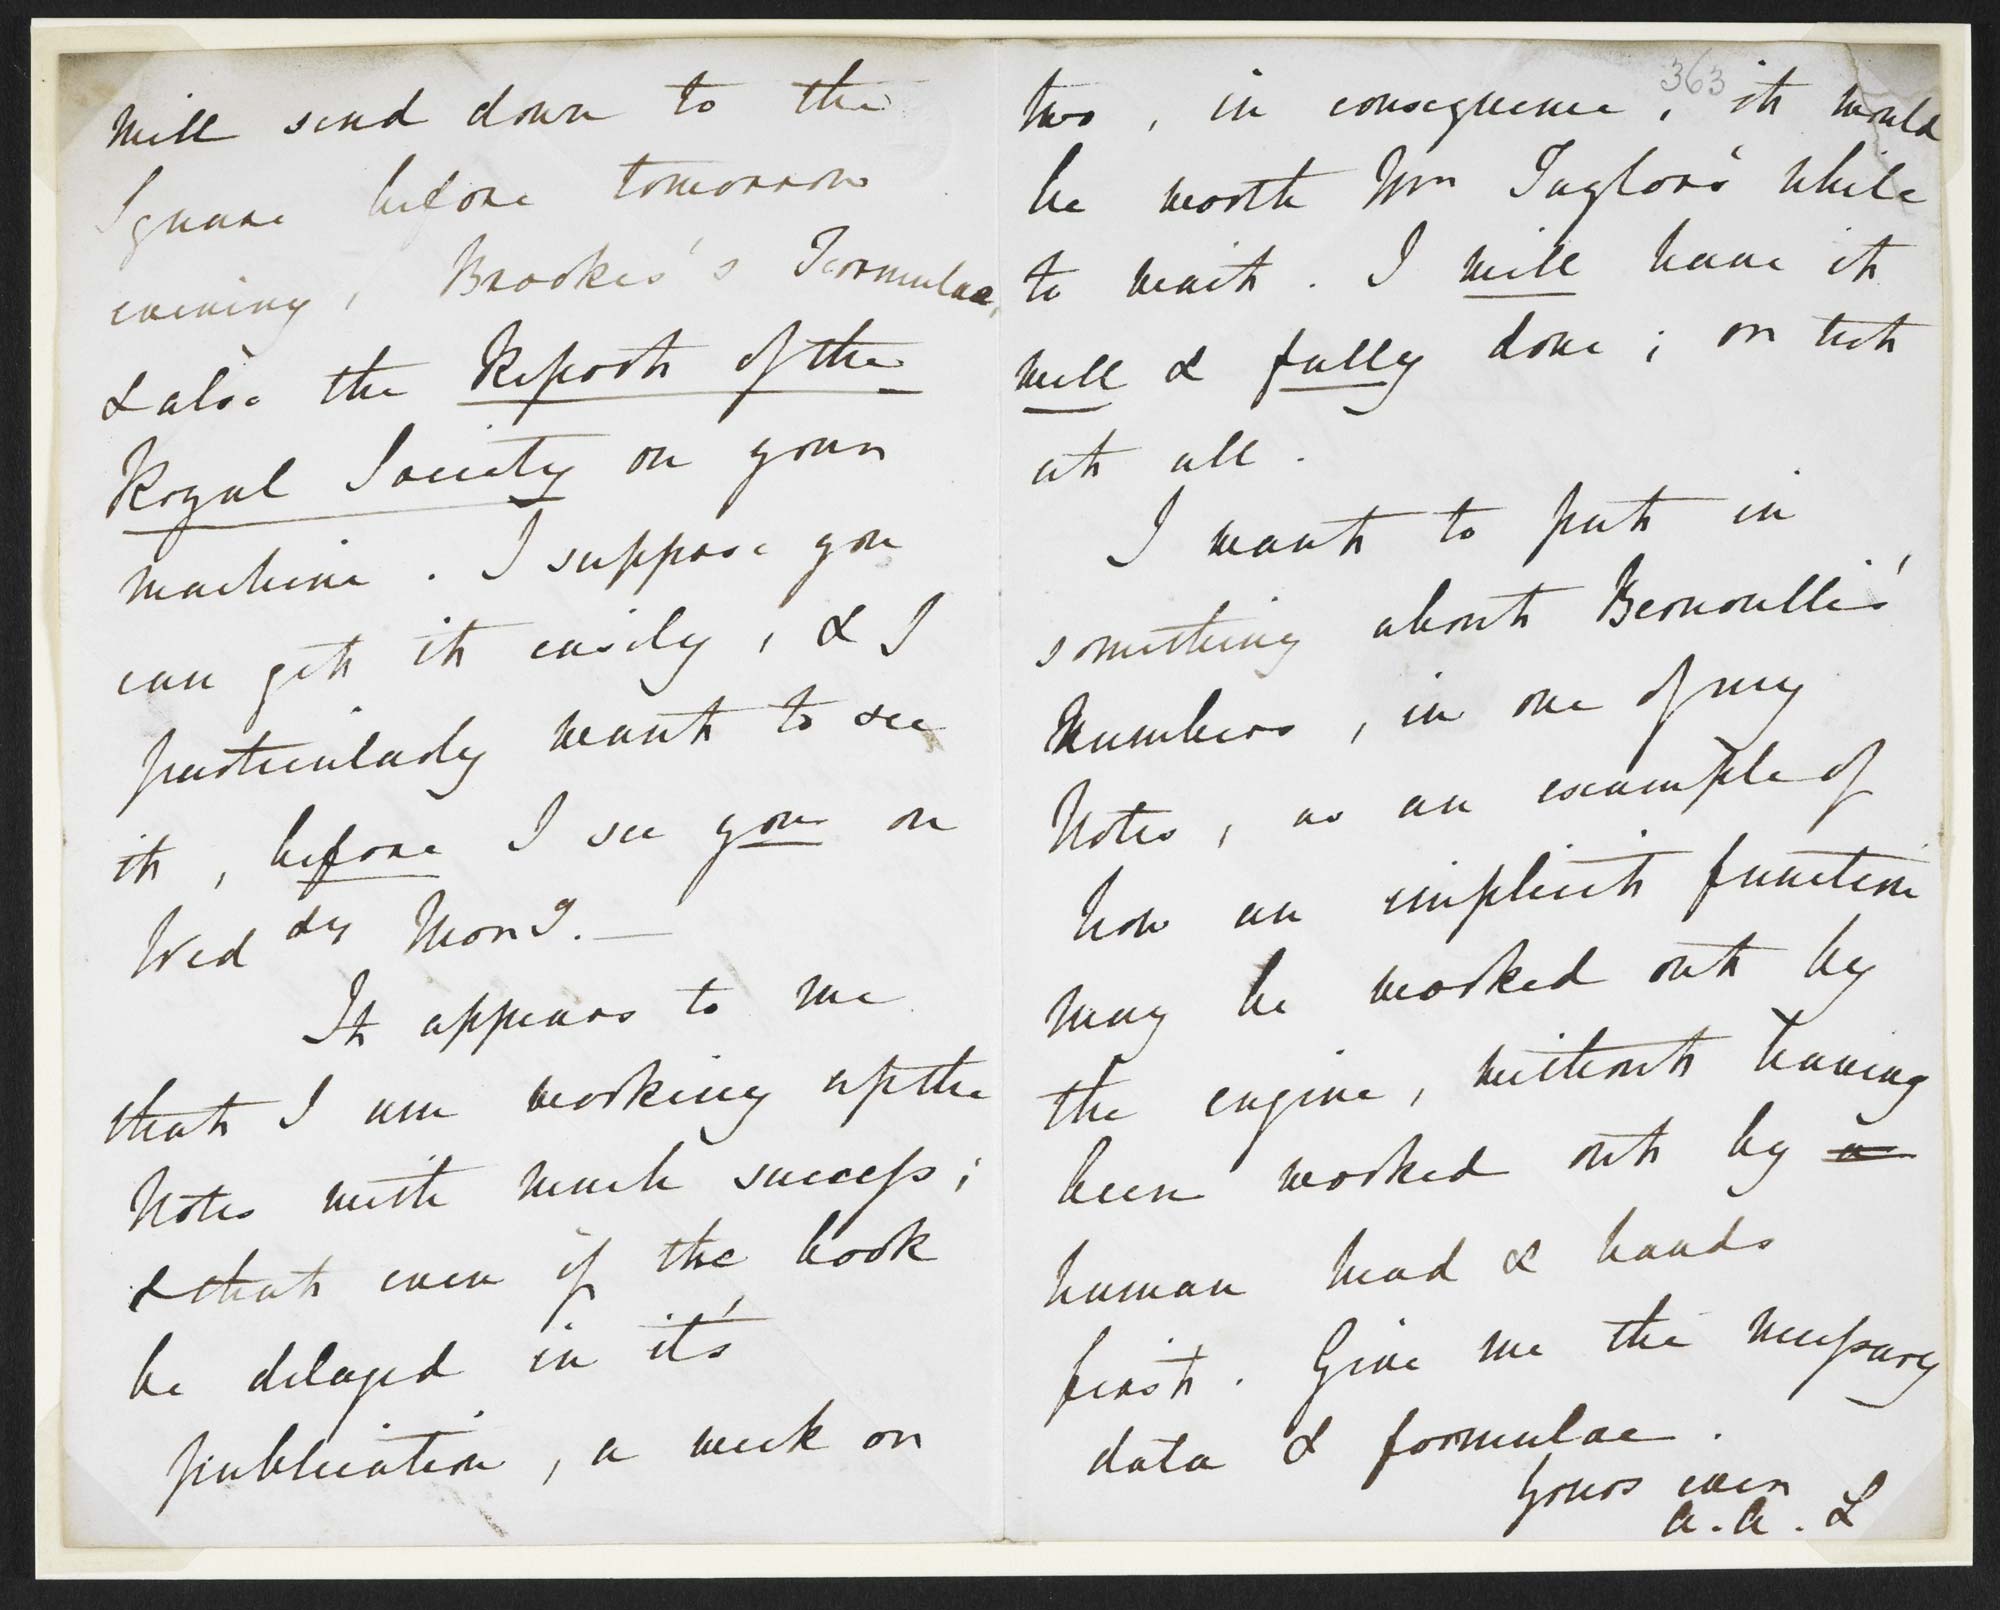 will send down to the
Square before tomorrow
evening, Brookes's Formulae,
& also the Report of the
Royal Society on your
machine. I suppose you
can get it easily, & I
particularly want to see
it, before I see you on
Wed dy Morng. —
It appears to me
that I am working up the
Notes with much success;
& that even if the book
be delayed in it's
publication, a week or
363
two, in consequence, it would
be worth Mr Taylor's while
to wait. I will have it
well & fully done; or not
at all.
I want to put in
something about Bernoulli's
Numbers, in one of my
Notes, as an example of
how an implicit function
may be worked out by
the engine, without having
been worked out by a
human head & hands
first. Give me the necessary
data & formulae.
Yours ever
A.A.L